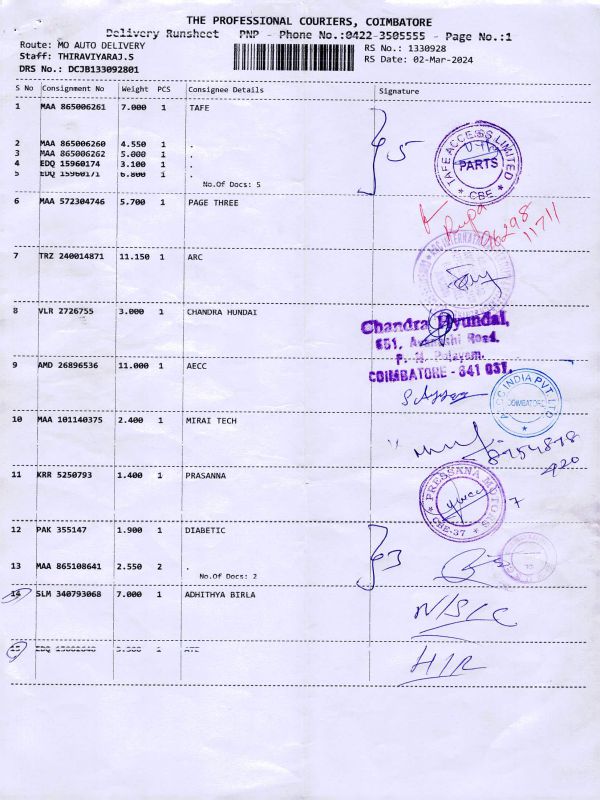 THE PROFESSIONAL COURIERS, COIMBATORE
Delivery Runsheet PNP - Phone No.:0422-3505555 - Page No.:1
Route: MO AUTO DELIVERY RS No.: 1330928
Staff: THIRAVIYARAJ.S RS Date: 02-Mar-2024
DRS No.: DCJB133092801
S No Consignment No Weight PCS Consignee Details Signature
1 MAA 865006261 7.000 1 TAFE
2 MAA 865006260 4.550 1 .
3 MAA 865006262 5.000 1 .
4 EDQ 15960174 3.100 1 .
5 EDQ 15960171 6.800 1 .
No.Of Docs: 5
5
TAFE ACCESS LIMITED
PARTS
* CBE *
6 MAA 572304746 5.700 1 PAGE THREE
Rupa
96298
11711
7 TRZ 240014871 11.150 1 ARC
8 VLR 2726755 3.000 1 CHANDRA HUNDAI
Chandra Hyundai,
651, Avanashi Road,
P. N. Palayam,
COIMBATORE - 641 037.
9 AMD 26896536 11.000 1 AECC
INDIA PVT LTD
COIMBATORE
10 MAA 101140375 2.400 1 MIRAI TECH
8754878
920
11 KRR 5250793 1.400 1 PRASANNA
PRESSANA MOTORS
CBE-37
12 PAK 355147 1.900 1 DIABETIC
13 MAA 865108641 2.550 2 .
No.Of Docs: 2
3
14 SLM 340793068 7.000 1 ADHITHYA BIRLA
N/S/C
15 1
H/R